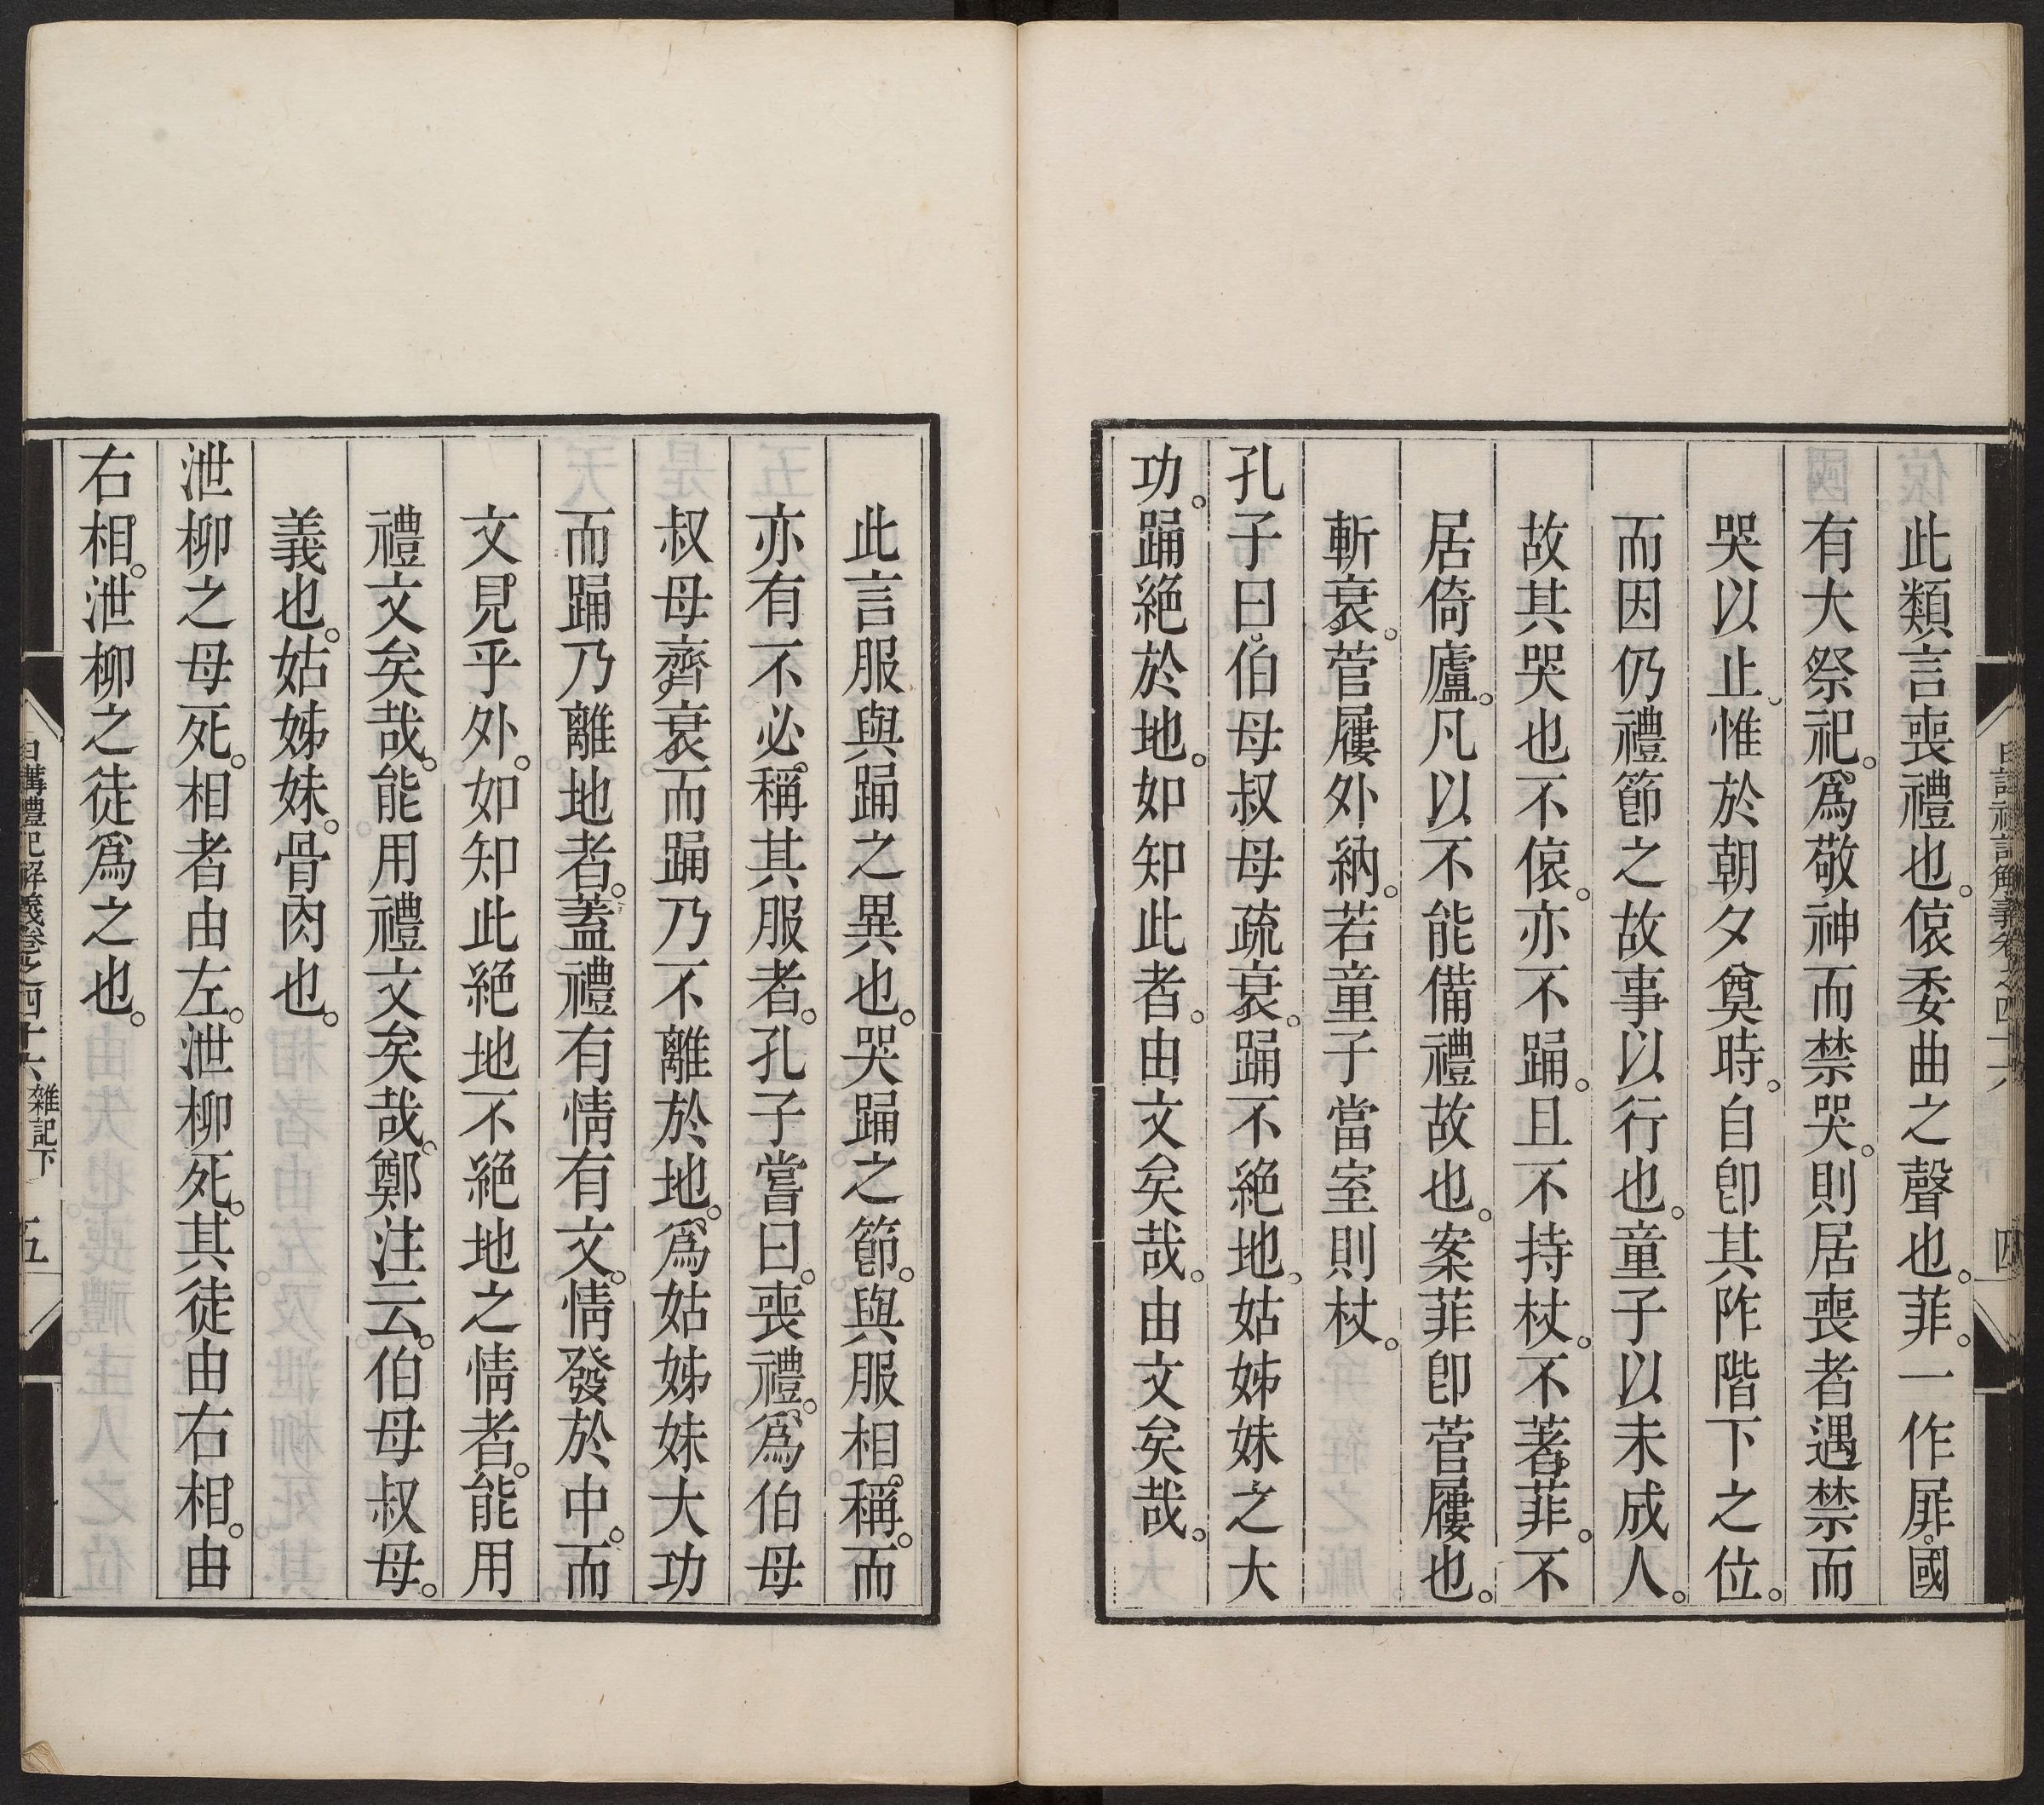 此類言喪禮也。偯委曲之聲也。菲。一作屝。國
有大祭祀。爲敬神而禁哭。則居喪者遇禁而
哭以止。惟於朝夕奠時。自卽其阼階下之位。
而因仍禮節之故事以行也。童子以未成人。
故其哭也不偯。亦不踊。且不持杖。不著菲。不
居倚廬。凡以不能備禮故也。案菲卽菅屨也。
斬衰。菅屨外納。若童子當室則杖。
孔子曰。伯母叔母疏衰。踊不絕地。姑姊妹之大
功。踊絕於地。如知此者。由文矣哉。由文矣哉。
四
此言服與踊之異也。哭踊之節。與服相稱。而
亦有不必稱其服者。孔子嘗曰。喪禮。爲伯母
叔母齊衰而踊乃不離於地。爲姑姊妹大功
而踊乃離地者。蓋禮有情有文。情發於中。而
文見乎外。如知此絕地不絕地之情者。能用
禮文矣哉。能用禮文矣哉。鄭注云。伯母叔母。
義也。姑姊妹。骨肉也。
泄柳之母死。相者由左。泄柳死。其徒由右相。由
右相。泄柳之徒爲之也。
日講禮記解義卷之四十六 雜記下 五